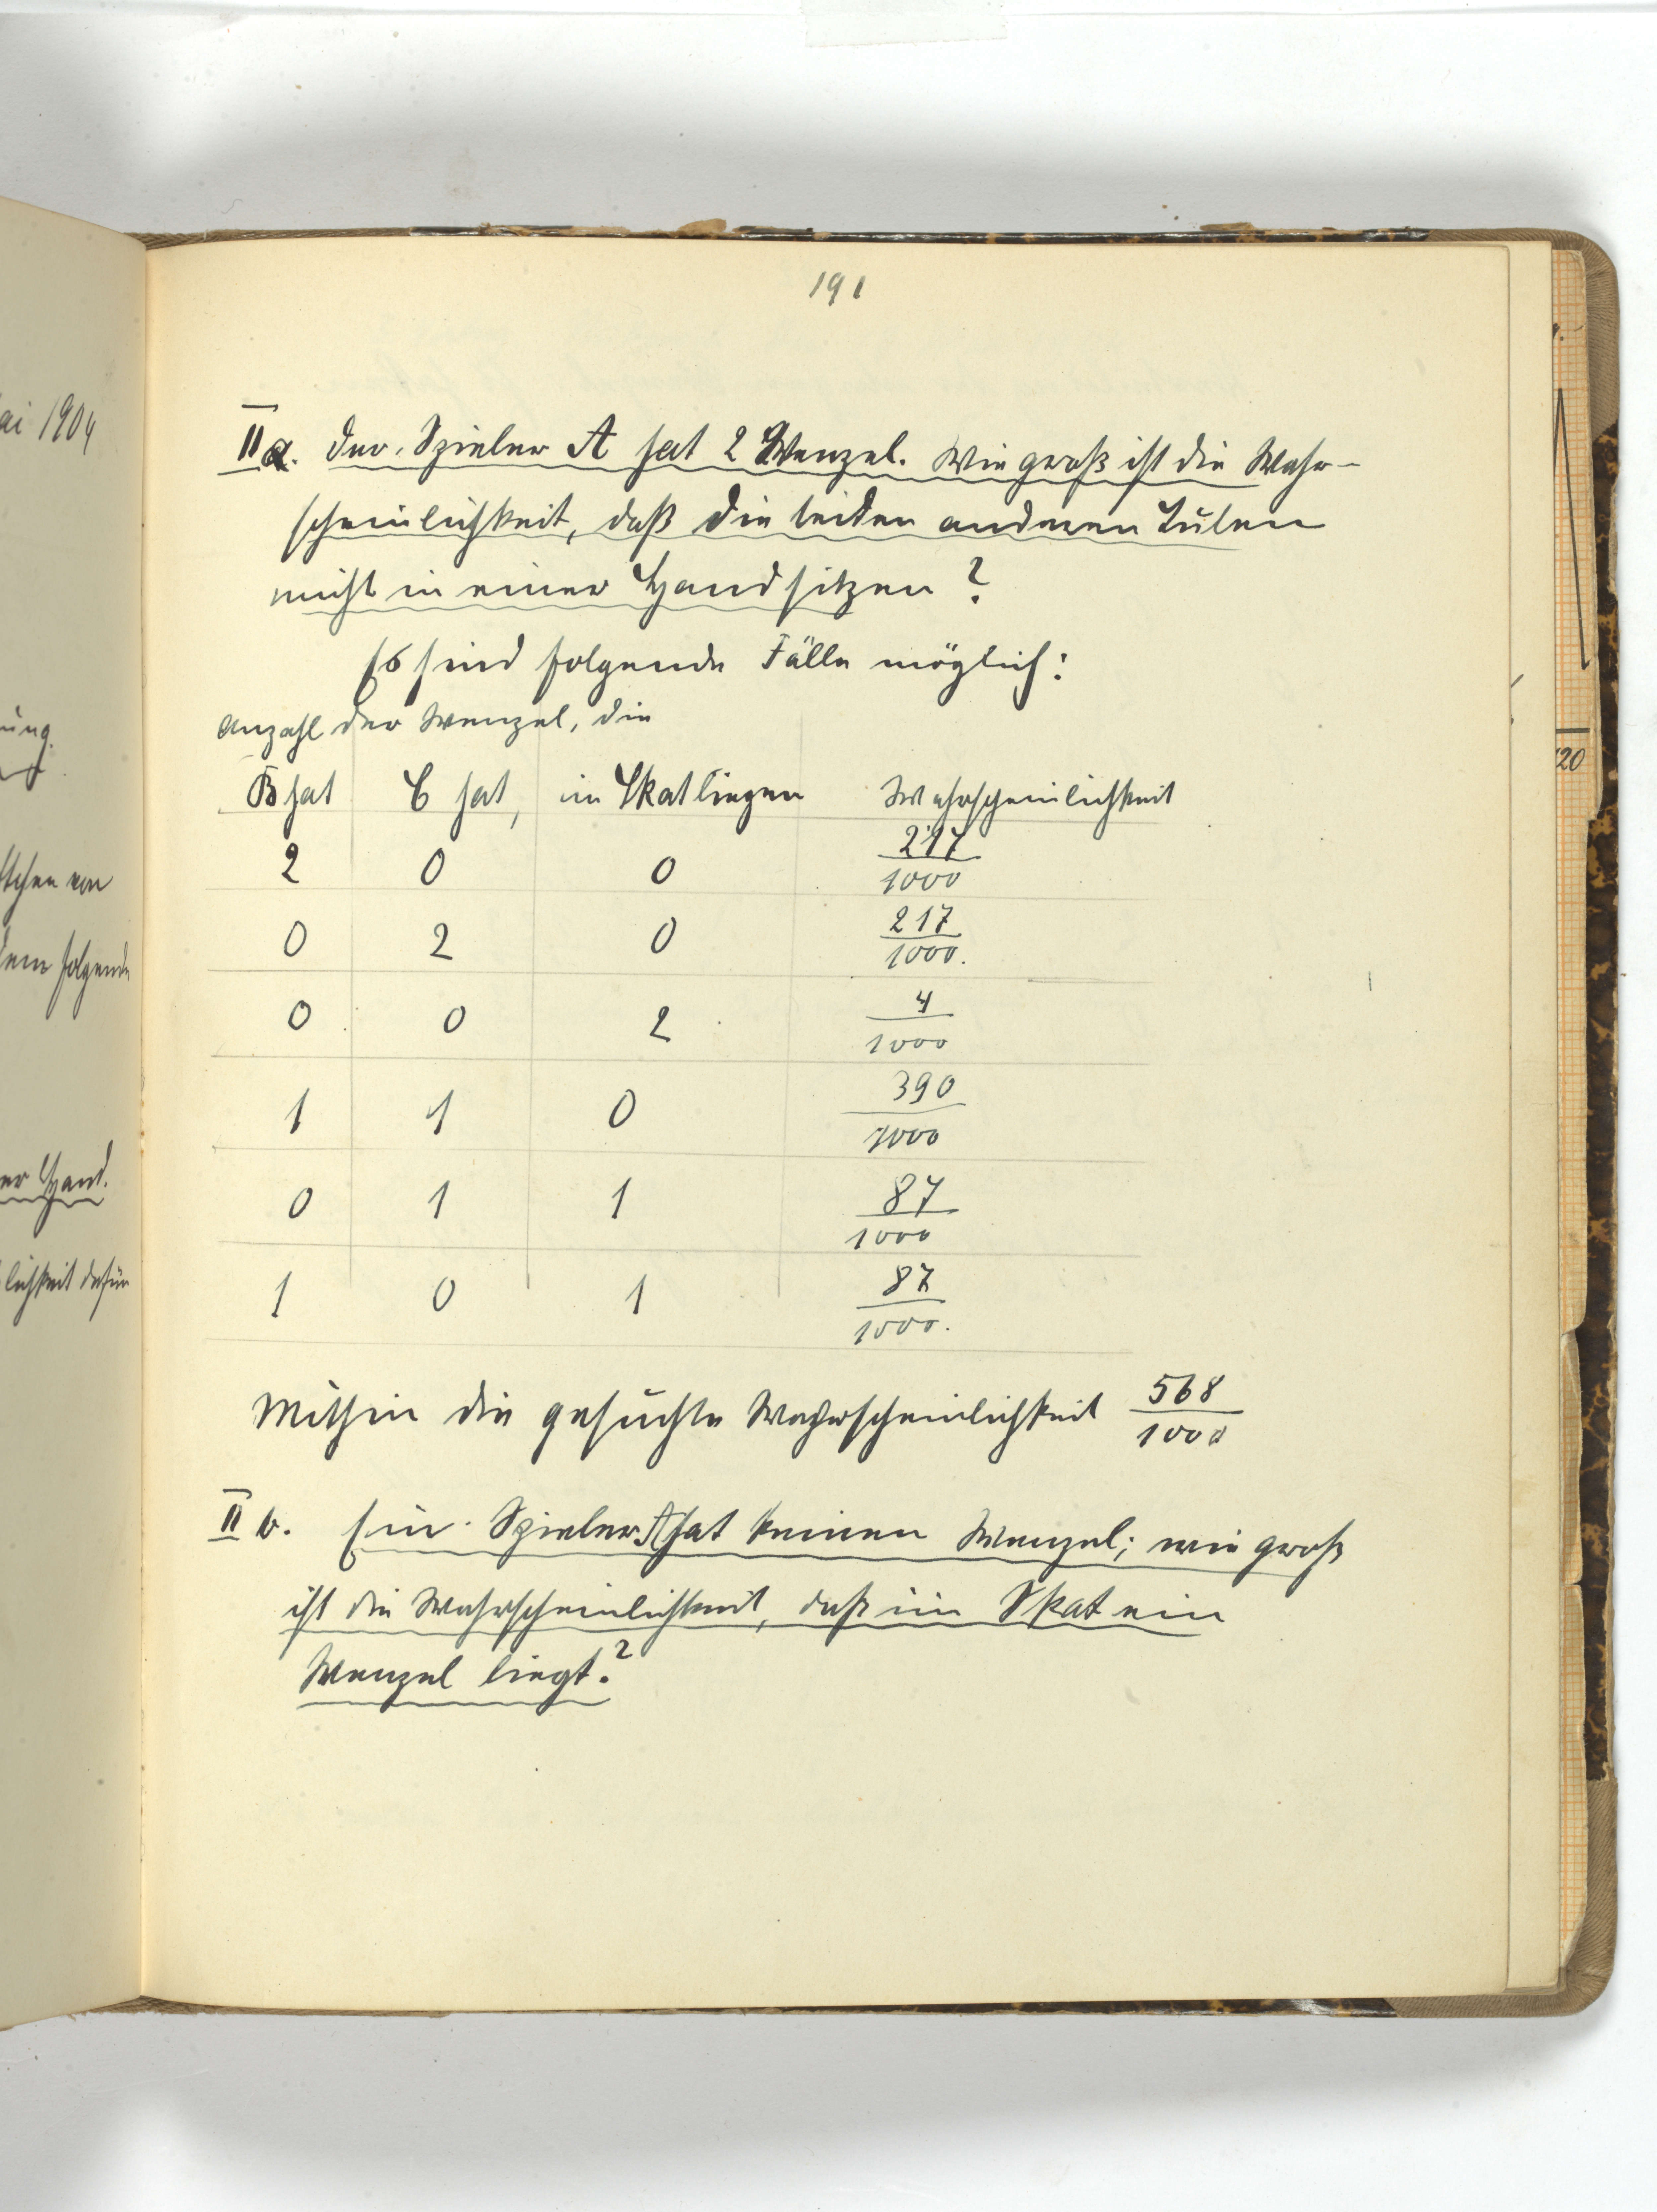 191
ai 1904
ung.
tchen von
dem folgende
er Hand.
lichkeit dafür
20
IIa. Der Spieler A hat 2 Wenzel. Wie groß ist die Wahr-
scheinlichkeit, daß die beiden anderen Buben
nicht in einer Hand sitzen?
Es sind folgende Fälle möglich:
Anzahl der Wenzel, die
B hat C hat, im Skat liegen Wahrscheinlichkeit
2 0 0 217/1000
0 2 0 217/1000.
0 0 2 4/1000
1 1 0 390/1000
0 1 1 87/1000
1 0 1 87/1000.
Mithin die gesuchte Wahrscheinlichkeit 568/1000
II b. Ein Spieler A hat keinen Wenzel; wie groß
ist die Wahrscheinlichkeit, daß im Skat ein
Wenzel liegt?